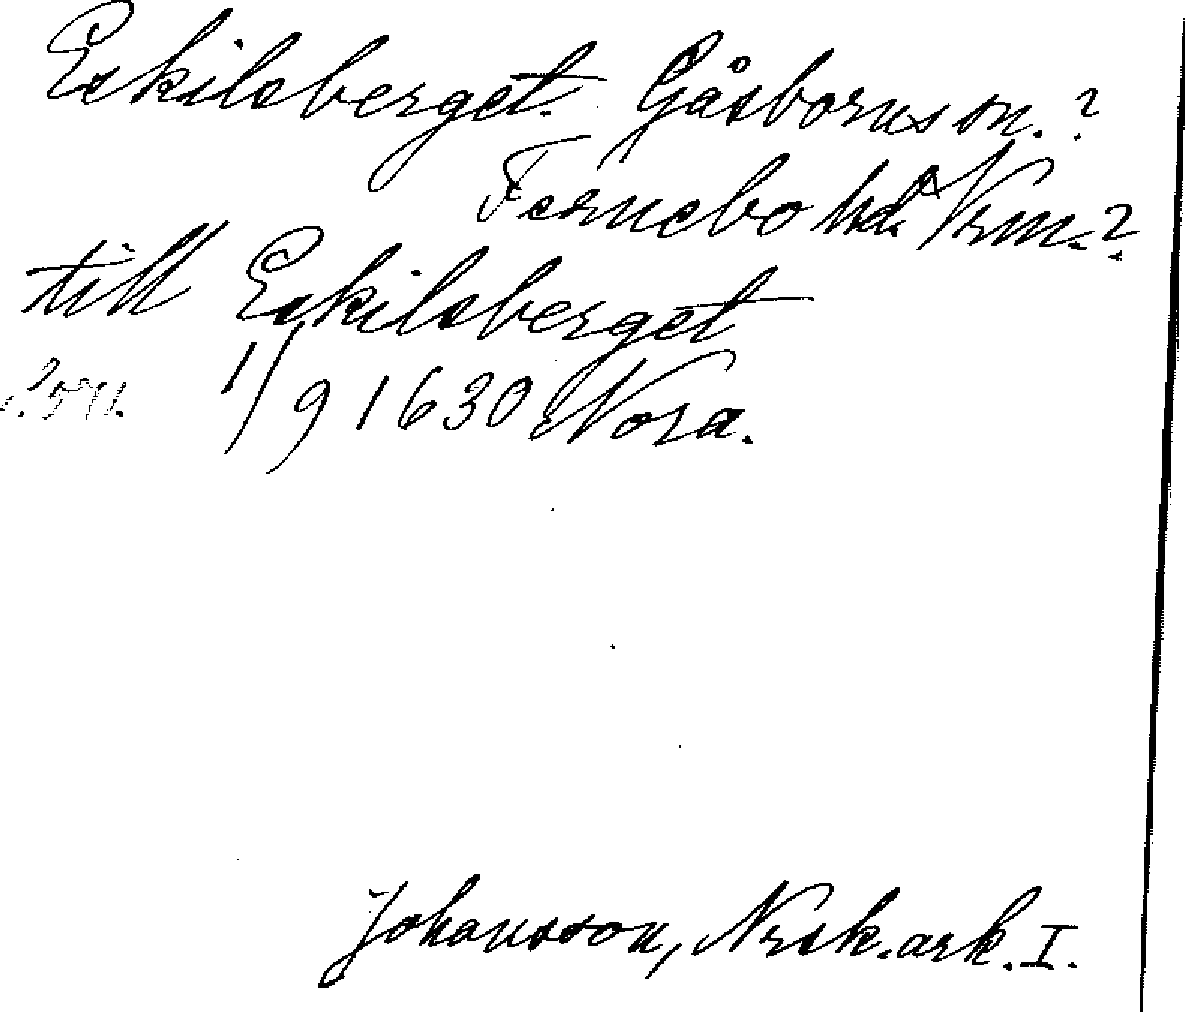 Eskilsberget. Gåsborns sn.?
Fernebo hd. Vrm.?
till Eskilsberget
1/9 1630 Nora.
Johansson, Nrsk. ark. I.